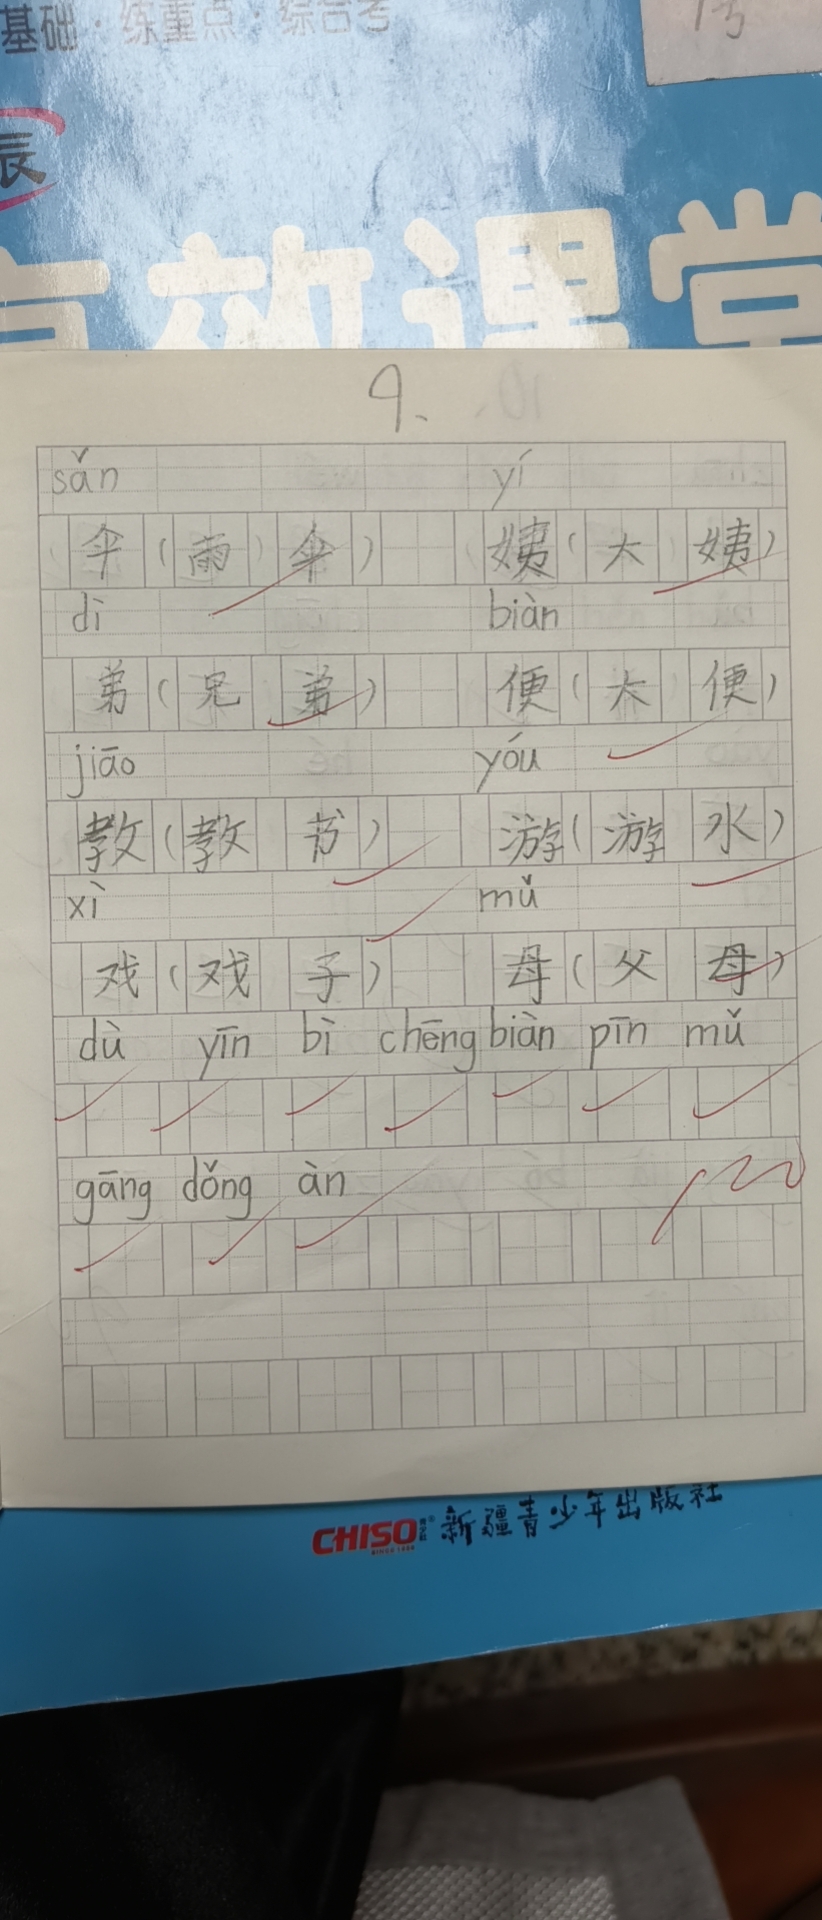 基础·练重点·综合考
1号
辰
高效课堂
9、
sǎn yí
伞（雨伞） 姨（大姨）
dì biàn
弟（兄弟） 便（大便）
jiāo yóu
教（教书） 游（游水）
xì mǔ
戏（戏子） 母（父母）
dù yīn bì chēng biàn pīn mǔ
gāng dǒng àn
100
CHISO 新疆青少年出版社